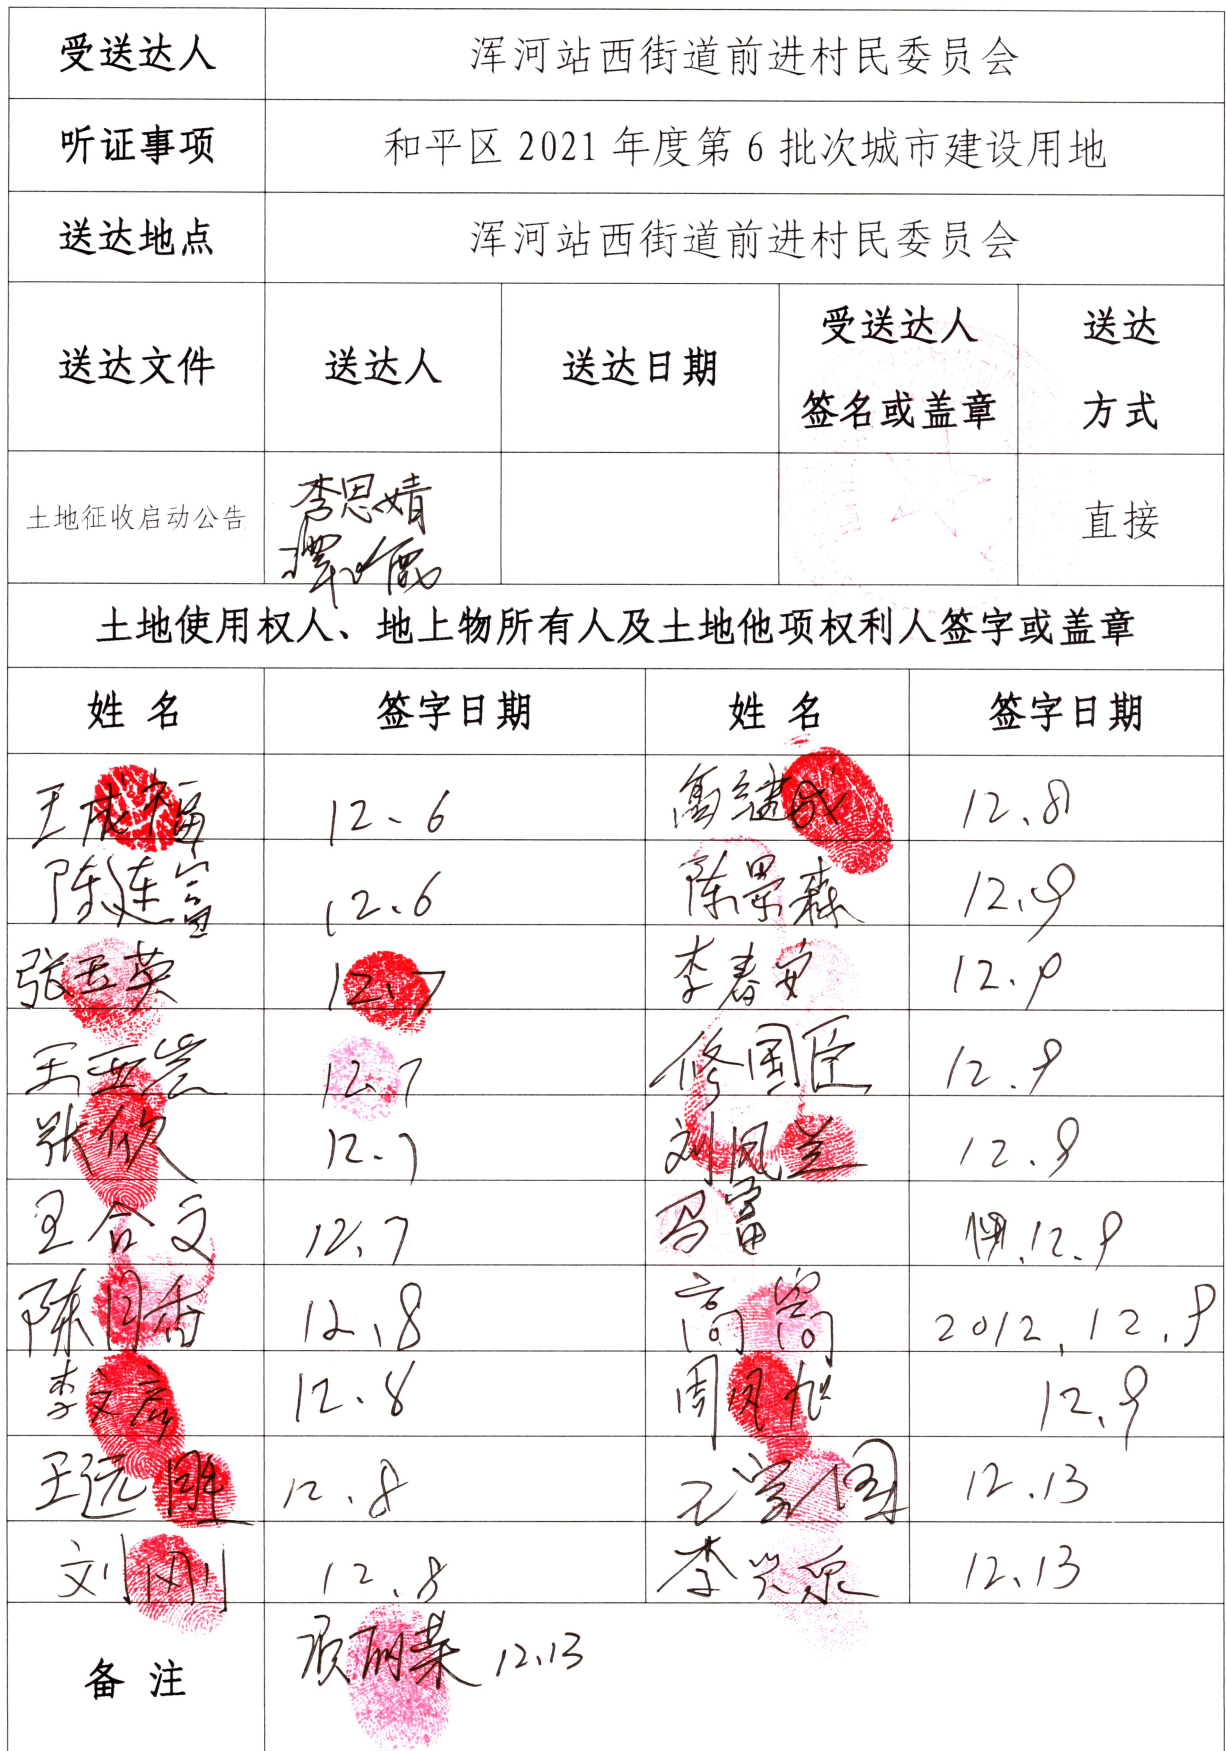 受送达人 浑河站西街道前进村民委员会
听证事项 和平区 2021 年度第 6 批次城市建设用地
送达地点 浑河站西街道前进村民委员会
送达文件 送达人 送达日期 受送达人 签名或盖章 送达 方式
土地征收启动公告 李思婧 直接
土地使用权人、地上物所有人及土地他项权利人签字或盖章
姓 名 签字日期 姓 名 签字日期
王成福 12.6 高继成 12.8
陈连富 12.6 陈景森 12.9
张玉英 12.7 李春安 12.9
王亚岩 12.7 修国臣 12.9
张欣 12.7 刘凤兰 12.9
王合文 12.7 富 12.9
陈月香 12.8 高 2012.12.9
李文彦 12.8 周凤旭 12.9
王远胜 12.8 王学国 12.13
刘刚 12.8 李兴泉 12.13
备 注 项丽荣 12.13